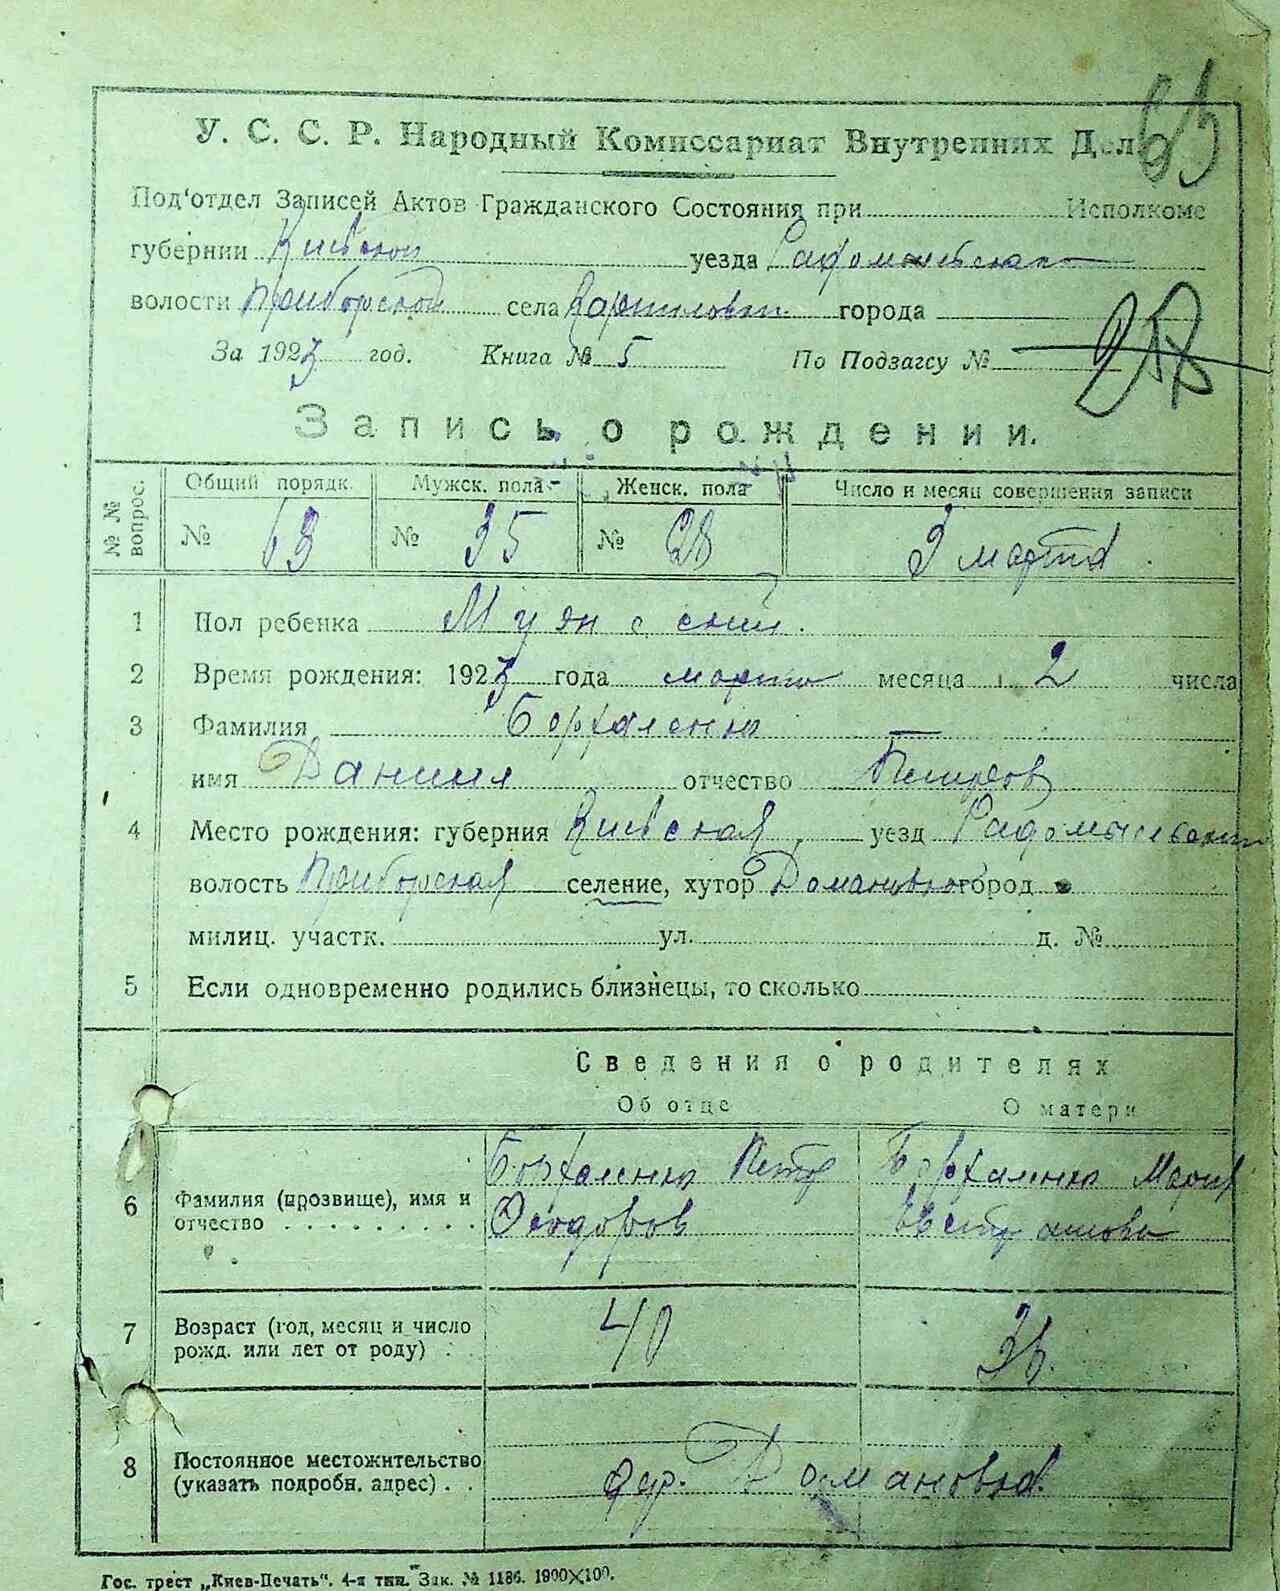 63
У. С. С. Р. Народный Комиссариат Внутренних Дел
Под'отдел Записей Актов Гражданского Состояния при Исполкоме
губернии Киевской уезда Радомысльского
волости Приборской села города
За 1923 год. Книга № 5 По Подзагсу №
258
Запись о рождении.
№ № вопрос. Общий порядк. Мужск. пола Женск. пола Число и месяц совершения записи
№ 63 № 35 № 28 3 марта
1 Пол ребенка Мужеский.
2 Время рождения: 1923 года марта месяца 2 числа
3 Фамилия
имя Даниил отчество Петров
4 Место рождения: губерния Киевская уезд Радомысльский
волость Приборская селение, хутор Домановка город
милиц. участк. ул. д. №
5 Если одновременно родились близнецы, то сколько
Сведения о родителях
Об отце О матери
6 Фамилия (прозвище), имя и отчество Петр Феодоров Мария
7 Возраст (год, месяц и число рожд. или лет от роду) 40 36.
8 Постоянное местожительство (указать подробн. адрес) дер. Домановка.
Гос. трест „Киев-Печать". 4-я тип. Зак. № 1186. 1900×100.